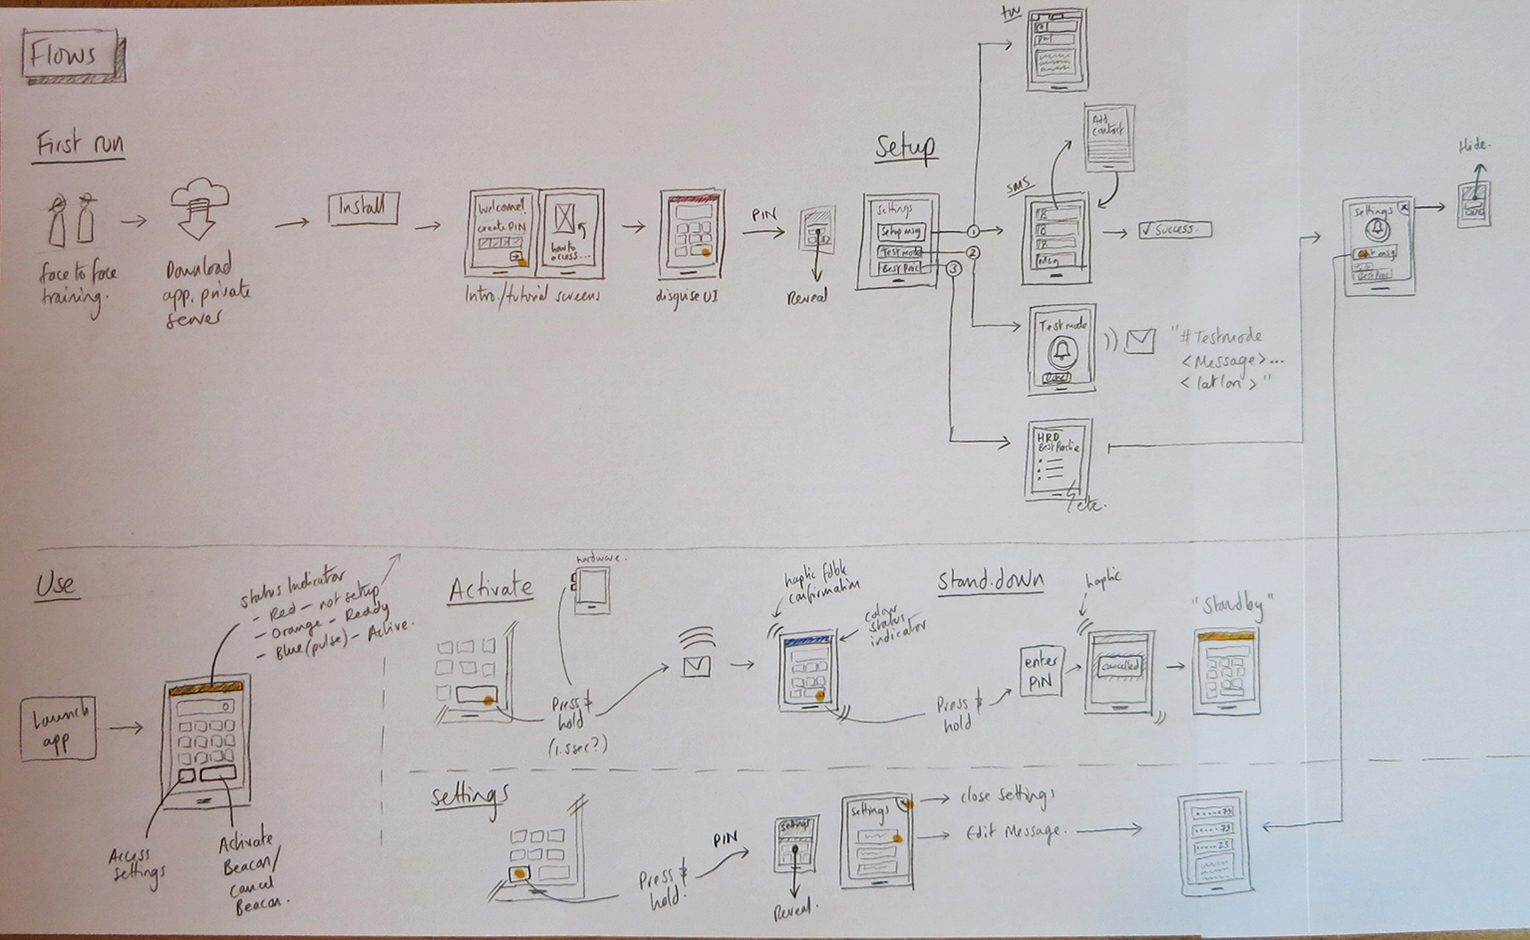 Flows
First run
face to face
training.
Download
app. private
server
Install
Welcome!
create PIN
how to
access...
Intro./tutorial screens
disguise UI
PIN
Reveal
Setup
Settings
Setup msg
Test mode
Best Prac
1
2
3
tw
Add
contact
SMS
Msg
✓ Success.
Test mode
"#Testmode
<Message>...
<lat lon>"
HRD
Best Practice
etc.
Settings
x
Best Prac
Hide.
Use
Status Indicator
- Red - not setup
- Orange - Ready
- Blue (pulse) - Active.
Launch
app
Access
settings
Activate
Beacon/
Cancel
Beacon.
Activate
hardware.
Press &
hold
(1.5sec?)
haptic fdbk
confirmation
colour
status
indicator
Stand.down
Press &
hold
enter
PIN
haptic
cancelled
"Standby"
Settings
Press &
hold.
PIN
Settings
Reveal.
Settings
x
close settings
Edit Message.